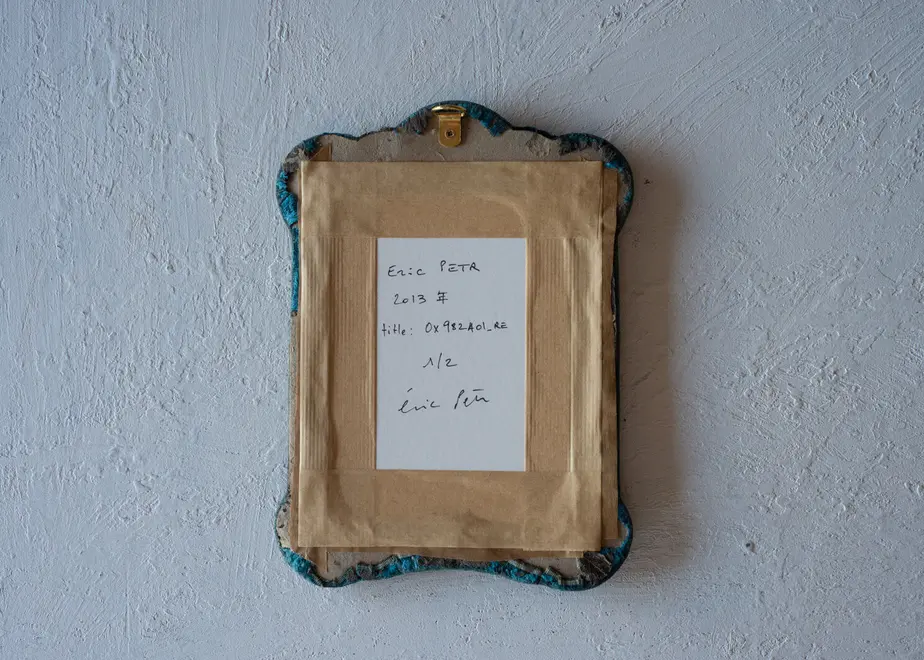 Eric PETR
2013 年
title: 0x982A01_RE
1/2
éric Petr